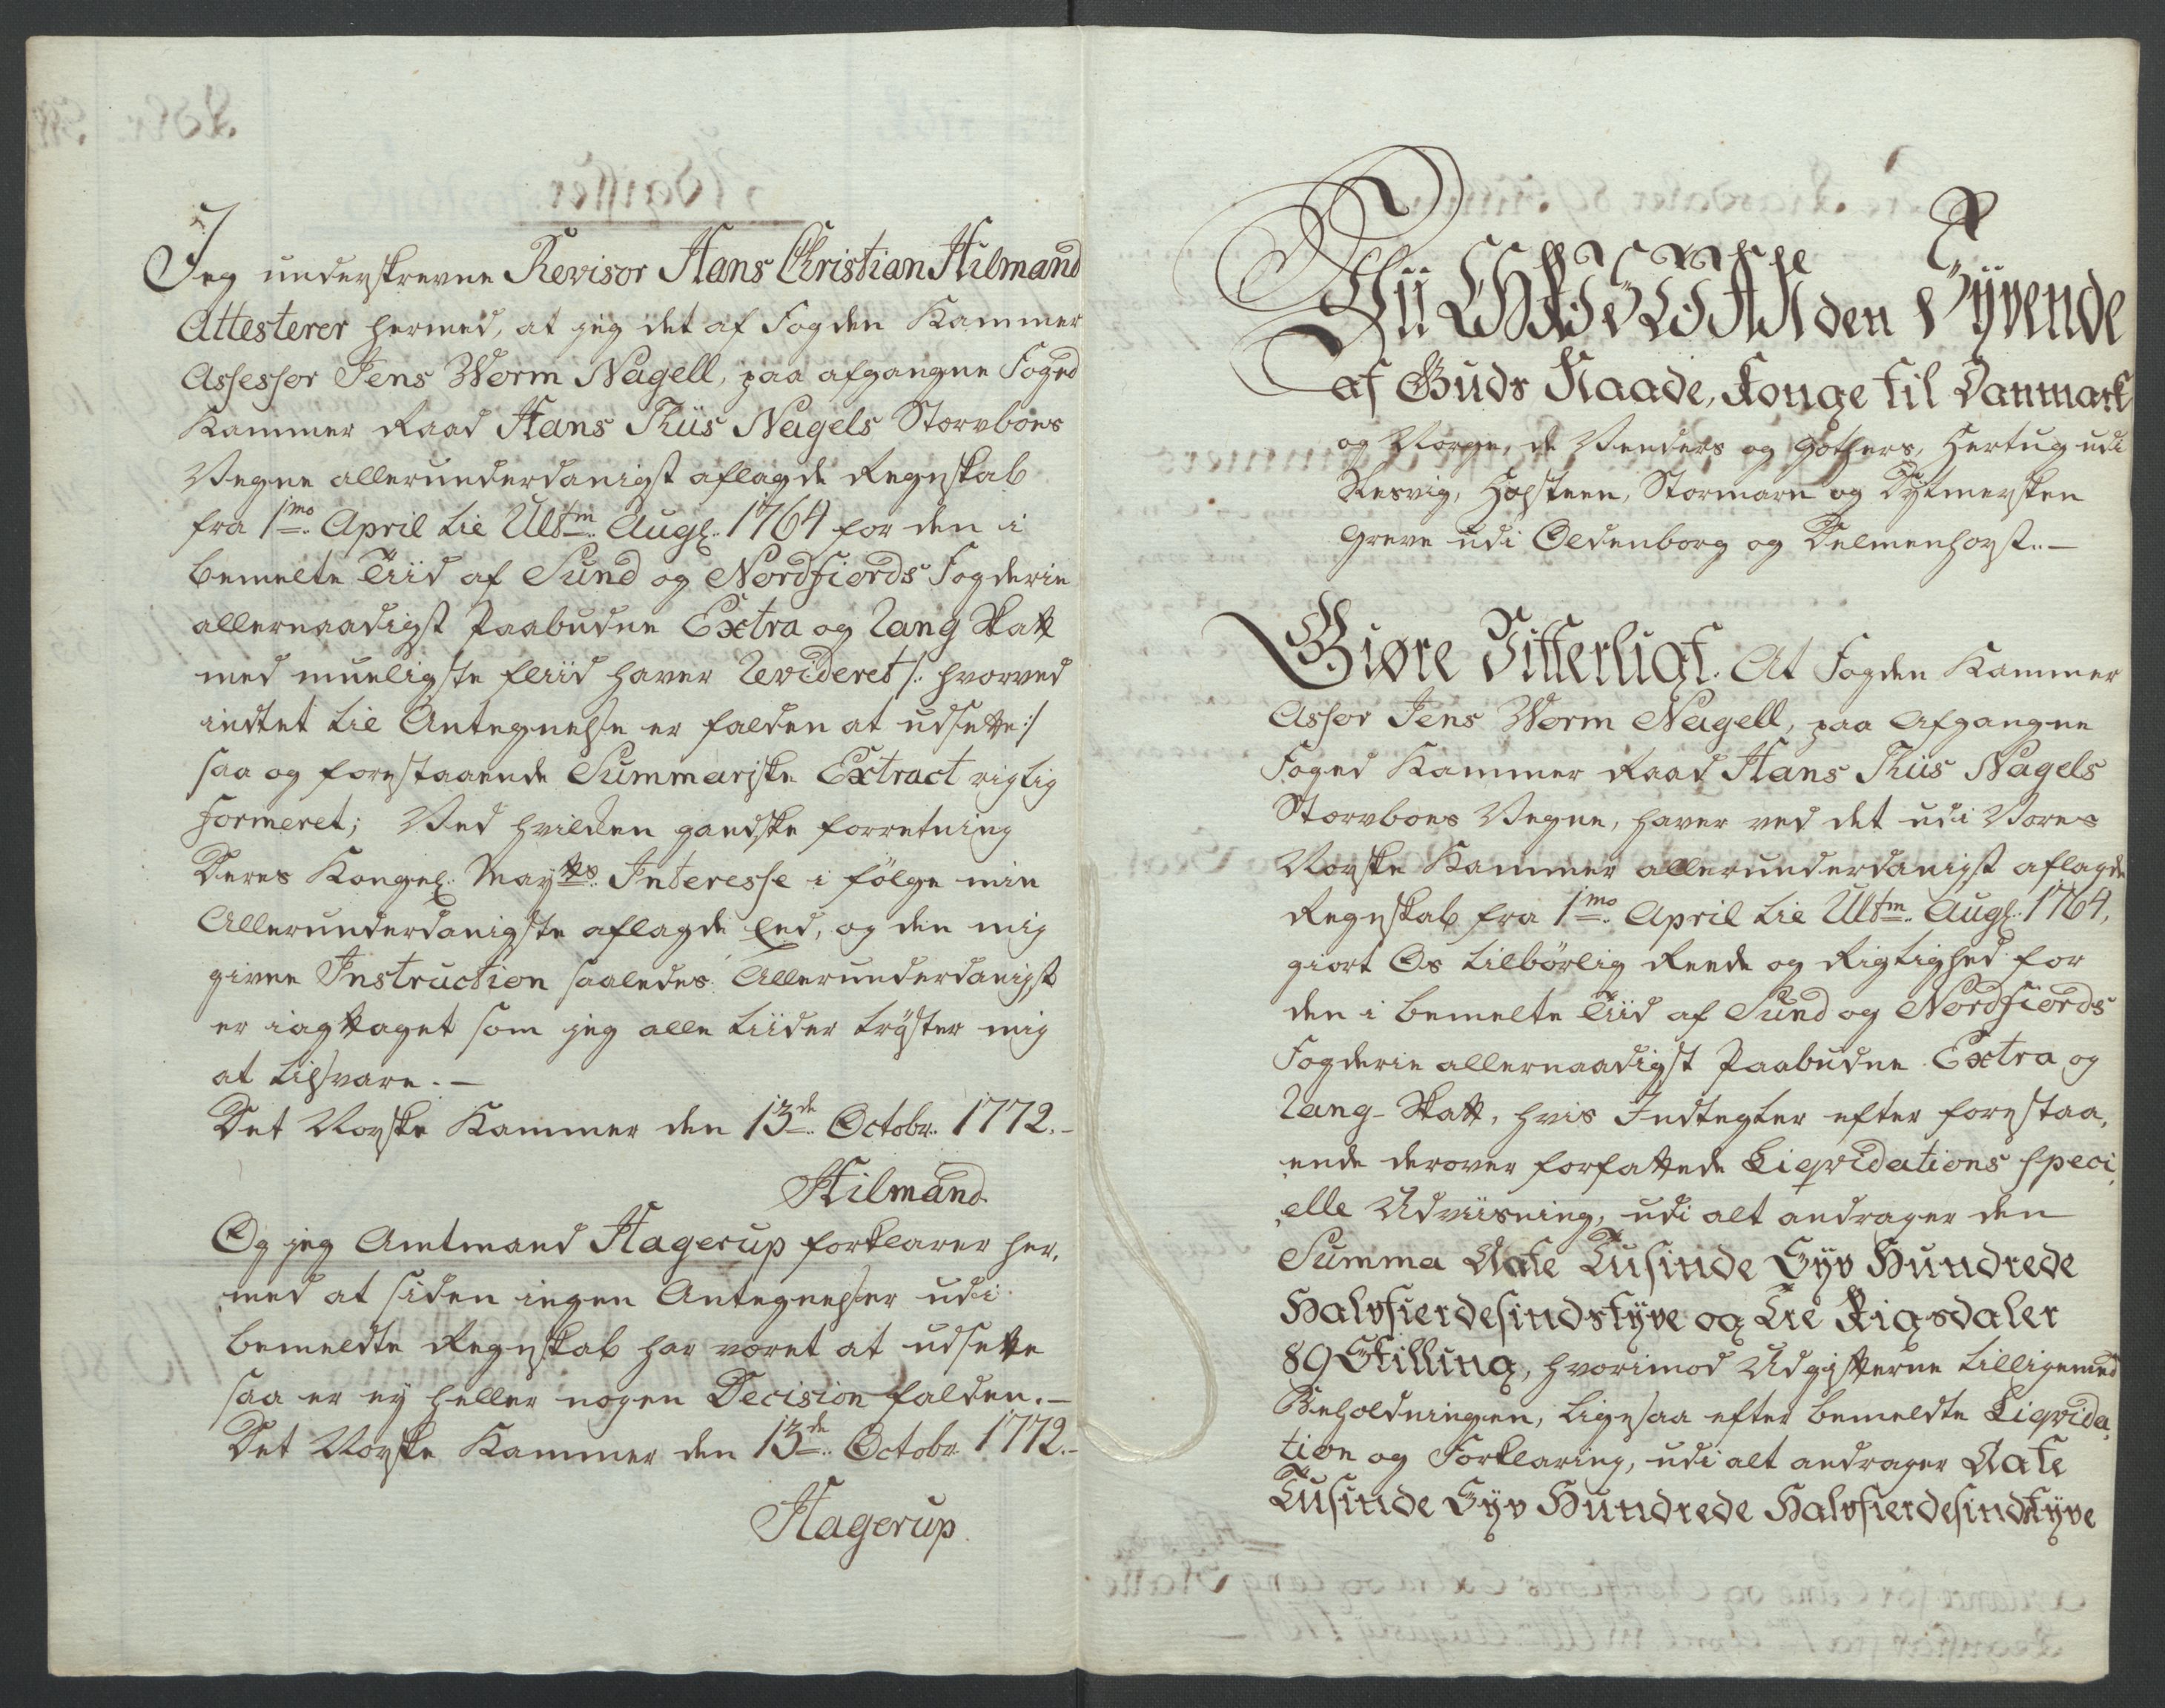 Jeg underskrevne Revisor Hans Christian Hilmand
Attesterer hermed, at jeg det af Fogden Kammer
Assessor Jens Worm Nagell, paa afgangne Foged
Kammer Raad Hans Thiis Nagels Stervboes
Vegne allerunderdanigst aflagde Regnskab
fra 1mo. April til Ultm. Aug. 1764 for den i
bemelte Tiid af Sund og Nordfiords Fogderie
allernaadigst Paabudne Extra og Rang Skatt
med mueligste fliid haver Revideret /: hvorved
indtet til Antegnelse er falden at udsette :/
saa og forestaaende Summariske Extract rigtig
Formeret; Ved hvilcken gandske forretning
Deres Kongel: Mayts. Interesse i følge min
Allerunderdanigste aflagde Eed, og den mig
givne Instruction saaledes Allerunderdanigst
er iagttaget som jeg alle tiider trøster mig
at tilsvare. –
Det Norske Kammer den 13de. Octobr. 1772. –
Hilmand.
Og jeg Amtmand Hagerup forklarer her,
med at siden ingen Antegnelser udi
bemeldte Regnskab har været at udsette
saa er ey heller nogen Decision falden. –
Det Norske Kammer den 13de. Octobr. 1772. –
Hagerup.
Wii CHRISTIAN den Syvende
af Guds Naade, Konge til Danmark
og Norge, de Venders og Gothers, Hertug udi
Slesvig, Holsteen, Stormarn og Dytmersken
Greve udi Oldenborg og Delmenhorst. –
Giøre Vitterligt. At Fogden Kammer
Assor Jens Worm Nagell, paa Afgangne
Foged Kammer Raad Hans Thiis Nagels
Stervboes Vegne, haver ved det udi Vores
Norske Kammer allerunderdanigst aflagde
Regnskab fra 1mo. April til Ultm. Aug. 1764,
giort Os tilbørlig Reede og Rigtighed for
den i bemelte Tiid af Sund og Nordfiords
Fogderie allernaadigst Paabudne Extra og
Rang-Skatt, hvis Indtegter efter forestaa,
ende derover forfattede Liqvidations speci
elle Udviisning, udi alt andrager den
Summa Aate Tusinde Syv Hundrede
Halvfierdesindstyve og Tre Rigsdaler
89 Skilling, hvorimod Udgifterne tilligemed
Beholdningen, ligesaa efter bemeldte Liqvida
tion og Forklaring, udi alt andrager Aate
Tusinde Syv Hundrede Halvfierdesindstyve